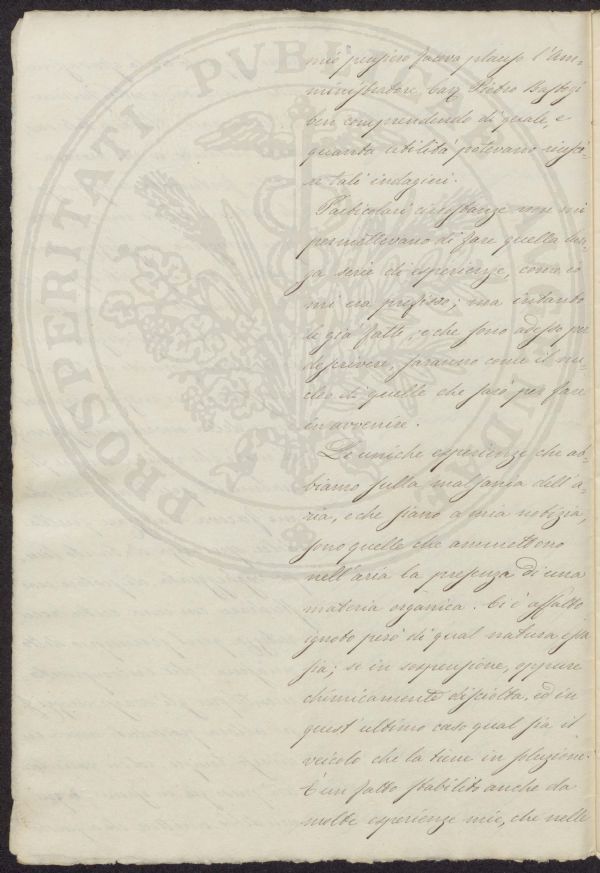 mio pensiero faceva plauso l'Am-
ministratore Cav. Pietro Bastogi
ben comprendendo di quale, e
quanta utilità potevano riusci-
re tali indagini.
Particolari circostanze non mi
permettevano di fare quella lun-
ga serie di esperienze, come io
mi era prefisso; ma intanto
le già fatte, e che sono adesso per
descrivere, saranno come il nu-
cleo di quelle che sarò per fare
in avvenire.
Le uniche esperienze che ab-
biamo sulla malsania dell'a-
ria, e che siano a mia notizia,
sono quelle che ammettono
nell'aria la presenza di una
materia organica. Ci è affatto
ignoto però di qual natura essa
sia; se in sospensione, oppure
chimicamente disciolta, ed in
quest'ultimo caso qual sia il
veicolo che la tiene in soluzione.
È un fatto stabilito anche da
molte esperienze mie, che nelle
PROSPERITATI PUBLICAE